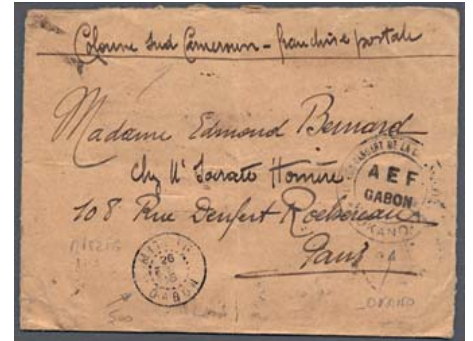 Colonne Sud Cameroun - franchise postale
Madame Edmond Bernard
Chez Mr Socrate Homère
108 Rue Denfert Rochereau
Paris
A E F
GABON
OKANO
26
GABON
OKANO